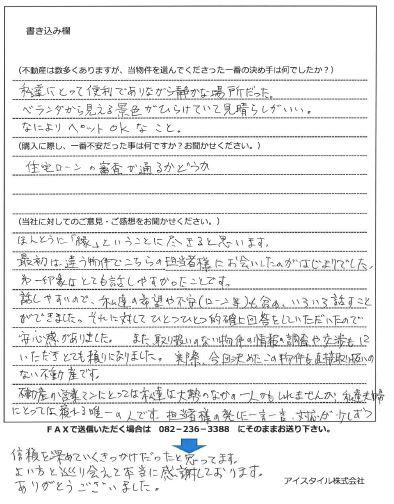 書き込み欄
(不動産は数多くありますが、当物件を選んでくださった一番の決め手は何でしたか?)
私達にとって便利でありながら静かな場所だった。
ベランダから見える景色がひらけていて見晴らしがいい。
なにより ペットOK なこと。
(購入に際し、一番不安だった事は何ですか?お聞かせください。)
住宅ローンの審査が通るかどうか
(当社に対してのご意見・ご感想をお聞かせください。)
ほんとうに「縁」ということに尽きると思います。
最初は違う物件でこちらの担当者様にお会いしたのがはじまりでした。
第一印象はとても話しやすかったことです。
話しやすいので、私達の希望や不安(ローン等)も含め、いろいろ話すこと
ができました。それに対してひとつひとつ的確に回答をしていただいたので
安心感がありました。 また、取り扱いのない物件の情報の調査や交渉もして
いただきとても頼りになりました。 実際、今回決めたこの物件も直接取り扱いの
ない不動産です。
不動産の営業マンにとっては私達は大勢のなかの一人かもしれませんが、私達夫婦
にとっては頼れる唯一の人です。担当者様の発した一言一言、対応が少しずつ
FAXで送信いただく場合は 082-236-3388 にそのままお送り下さい。
信頼を深めていくきっかけだったと思ってます。
よい方と巡り会えて本当に感謝しております。
ありがとうございました。
アイスタイル株式会社